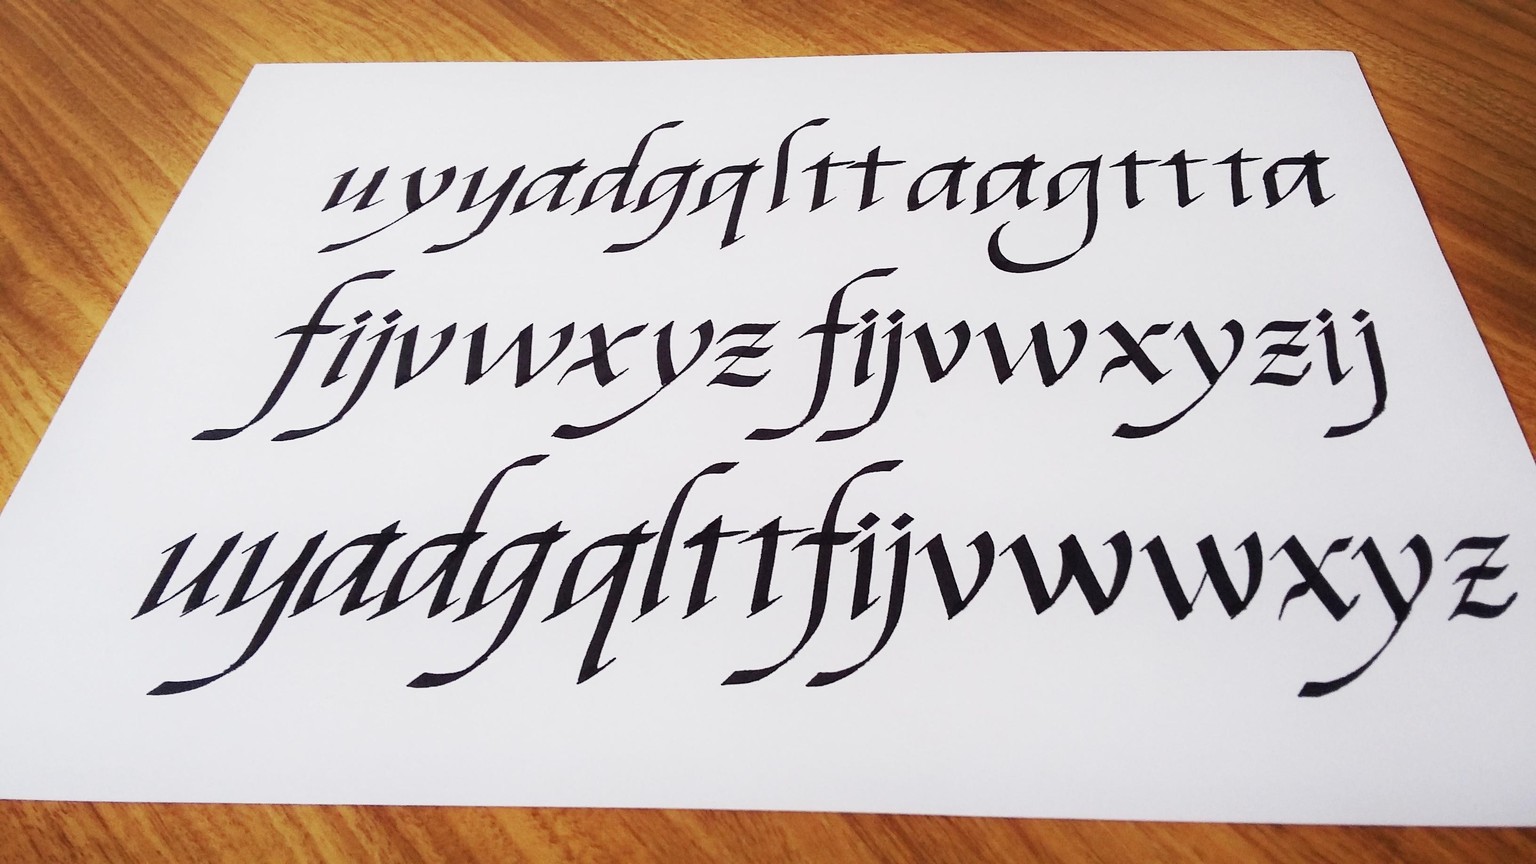 uyyadgqlttaagttta
fijvwxyzfijvwxyzij
uyadgqlttfijvwwxyz